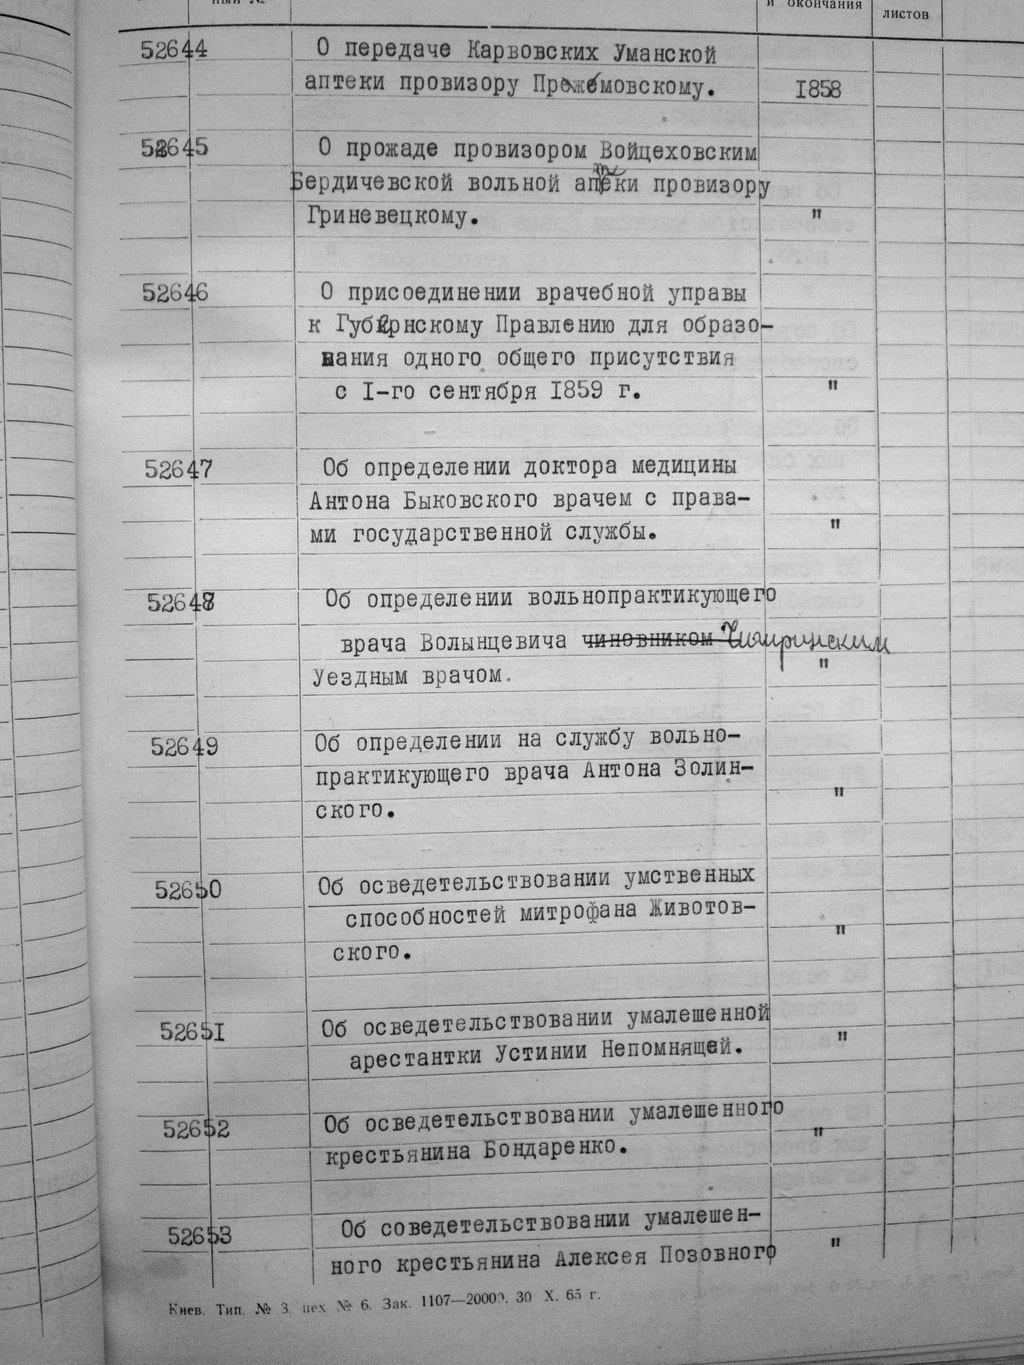 и окончания
листов
52644 О передаче Карвовских Уманской
аптеки провизору
1858
52645 О прожаде провизором Войцеховским
Бердичевской вольной аптеки провизору
Гриневецкому. "
52646 О присоединении врачебной управы
к Губернскому Правлению для образо-
вания одного общего присутствия
с I-го сентября 1859 г. "
52647 Об определении доктора медицины
Антона Быковского врачем с права-
ми государственной службы. "
52648 Об определении вольнопрактикующего
врача Волынцевича чиновником Чигиринским
Уездным врачом. "
52649 Об определении на службу вольно-
практикующего врача Антона Золин-
ского. "
52650 Об осведетельствовании умственных
способностей митрофана Животов-
ского. "
52651 Об осведетельствовании умалешенной
арестантки Устинии Непомнящей. "
52652 Об осведетельствовании умалешенного
крестьянина Бондаренко. "
52653 Об соведетельствовании умалешен-
ного крестьянина Алексея Позовного "
Киев. Тип. № 3. цех № 6. Зак. 1107—20000. 30 X. 65 г.